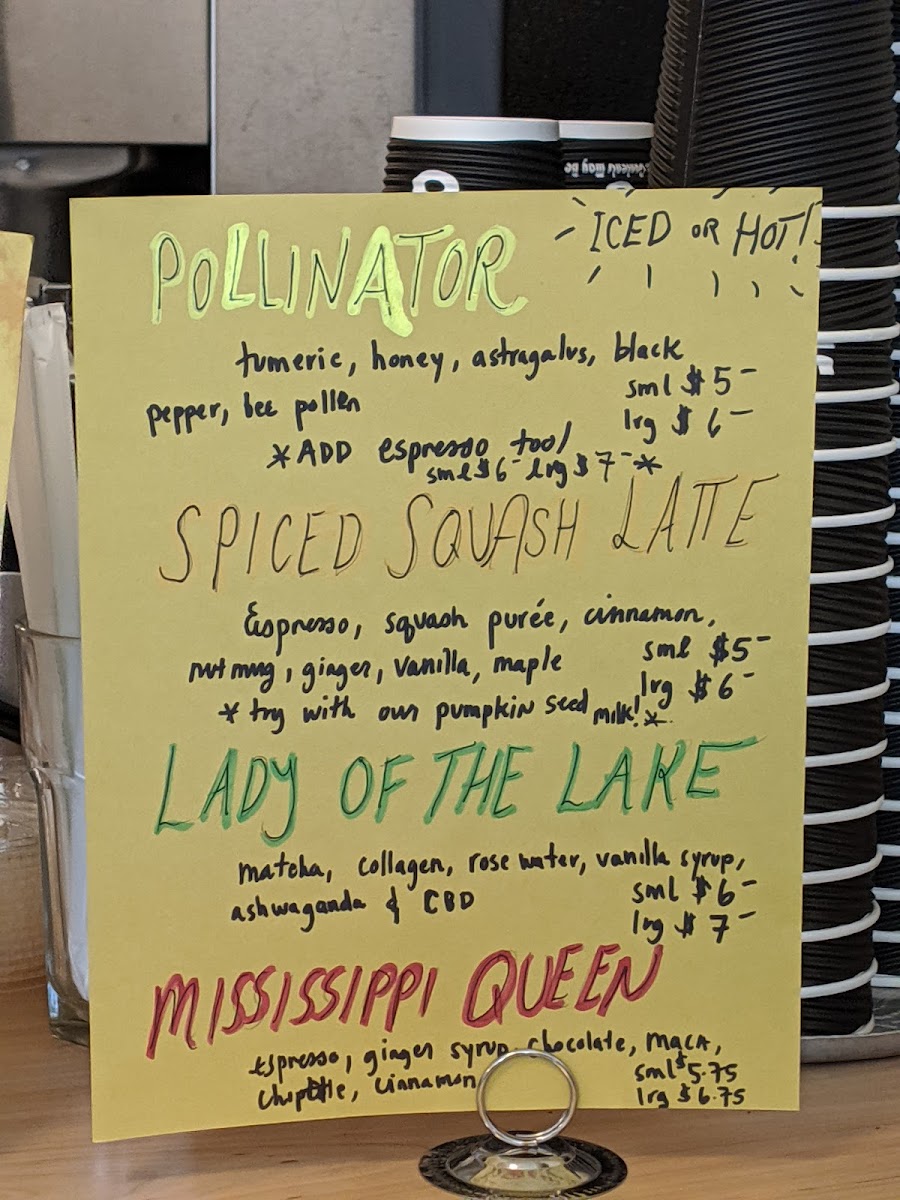 POLLINATOR
ICED OR HOT!
tumeric, honey, astragalus, black
pepper, bee pollen
sml $5-
lrg $6-
*ADD espresso too!
sml $6- lrg $7-*
SPICED SQUASH LATTE
Espresso, squash purée, cinnamon,
nutmug, ginger, vanilla, maple
sml $5-
lrg $6-
* try with our pumpkin seed milk! *
LADY OF THE LAKE
matcha, collagen, rose water, vanilla syrup,
ashwaganda & CBD
sml $6-
lrg $7-
MISSISSIPPI QUEEN
Espresso, ginger syrup, chocolate, maca,
chipotle, cinnamon
sml $5.75
lrg $6.75